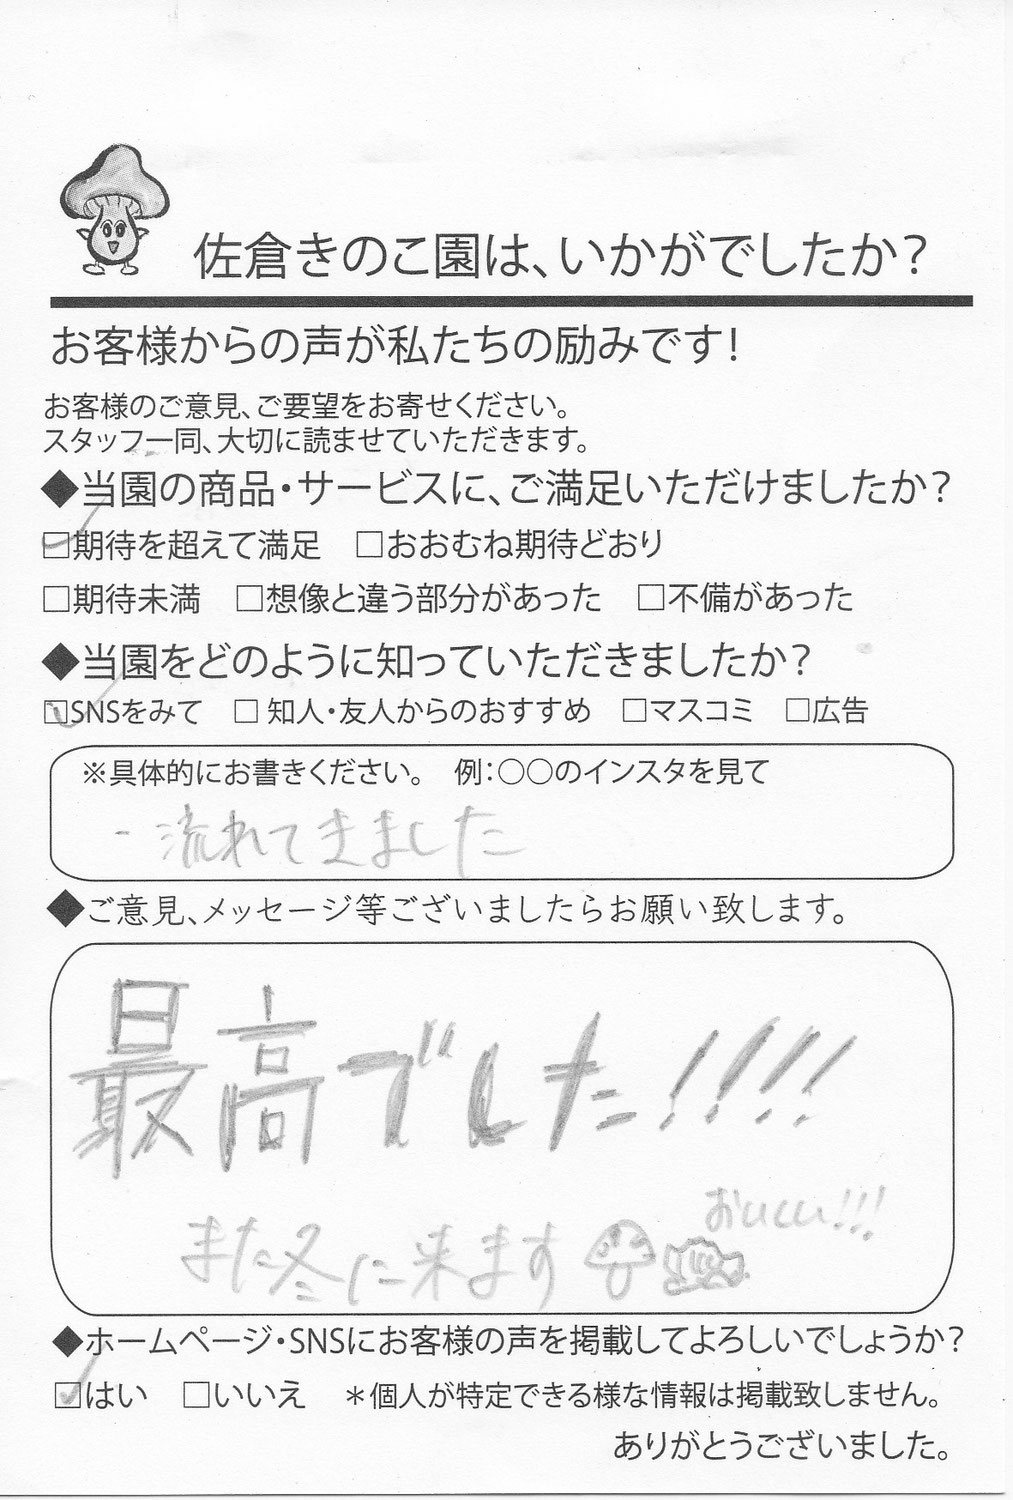 佐倉きのこ園は、いかがでしたか?
お客様からの声が私たちの励みです!
お客様のご意見、ご要望をお寄せください。
スタッフ一同、大切に読ませていただきます。
◆当園の商品・サービスに、ご満足いただけましたか?
☑期待を超えて満足 □おおむね期待どおり
□期待未満 □想像と違う部分があった □不備があった
◆当園をどのように知っていただきましたか?
☑SNSをみて □ 知人・友人からのおすすめ □マスコミ □広告
※具体的にお書きください。 例:○○のインスタを見て
- 流れてきました
◆ご意見、メッセージ等ございましたらお願い致します。
最高でした!!!!
おいしい!!!
また冬に来ます
◆ホームページ・SNSにお客様の声を掲載してよろしいでしょうか?
☑はい □いいえ *個人が特定できる様な情報は掲載致しません。
ありがとうございました。